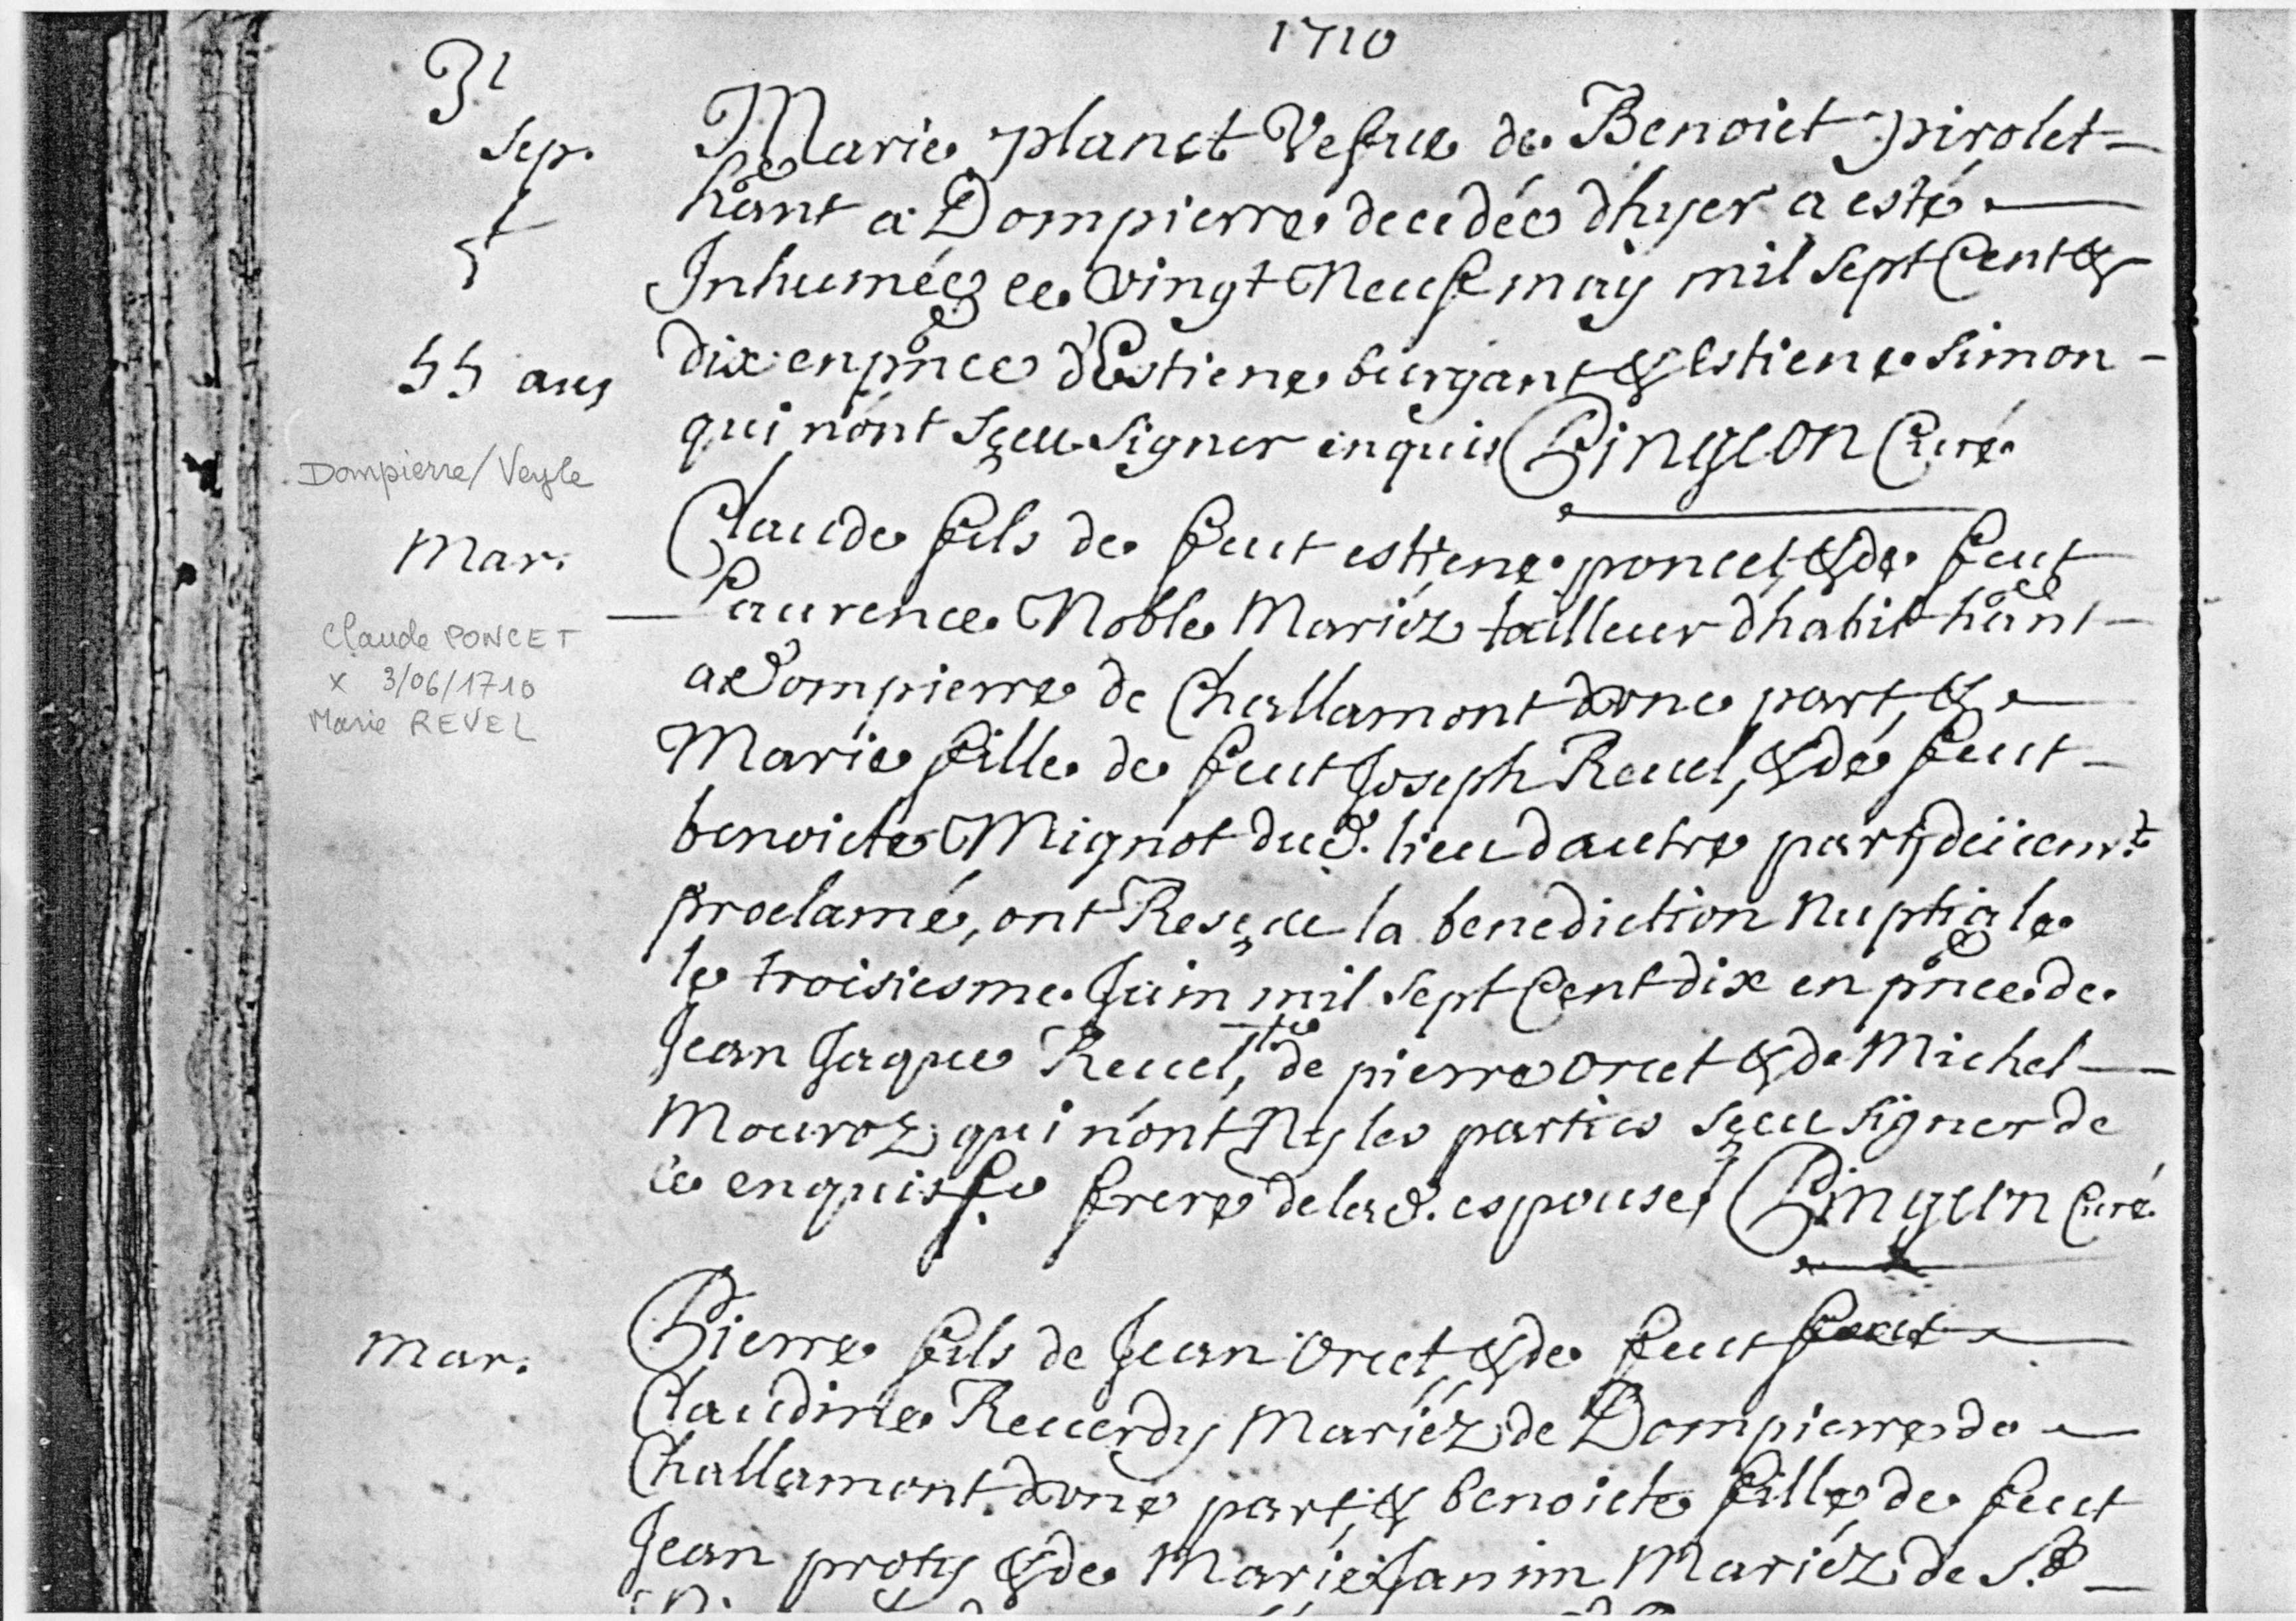 1710
31
Sep.
55 ans
Marie planet Vefue de Benoict pirolet
hant a Dompierre decedée dhyer a esté
Inhumée ce vingt Neuf may mil Sept Cent &
dix en pnce d'Estiene burgant & Estiene Simon
qui n'ont Sçeu Signer enquis Pingeon Curé
Dompierre/Veyle
Mar.
Claude PONCET
x 3/06/1710
Marie REVEL
Claude fils de feut estiene poncet, & de feut
Laurence Noble Mariéz tailleur dhabit hant
a Dompierre de Challamont dune part, &
Marie fille de feut Joseph Reuel, & de feut
benoicte Mignot dud. lieu dautre part, düemt.
proclamé, ont Resçeu la benediction Nuptiale
le troisiesme Juin mil Sept Cent dix en pnce de
Jean Jaque Reuel, de pierre oruet & de Michel
Mouroz, qui n'ont Ny les parties Sçeu Signer de
ce enquis frere de lad. espouse, Pingeon Curé
Mar.
Pierre fils de Jean Oruet, & de feut
Claudine Reuerdy Mariéz de Dompierre de
Challamont dune part, & benoicte fille de feut
Jean proty & de Marie Janin Mariéz de St